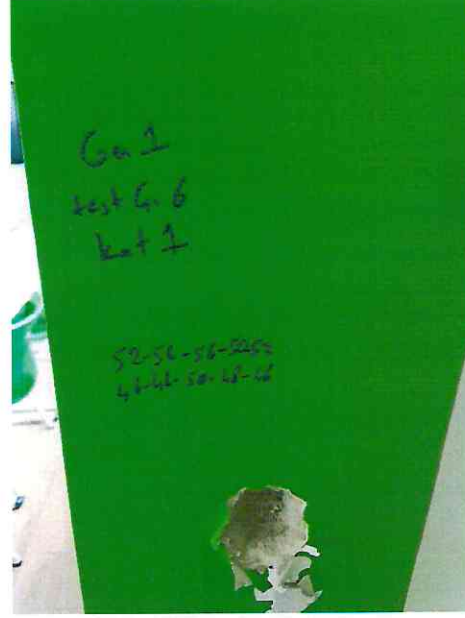 Gn 1
test G. 6
kat 1
52-56-56-52-52
46-46-50-48-46